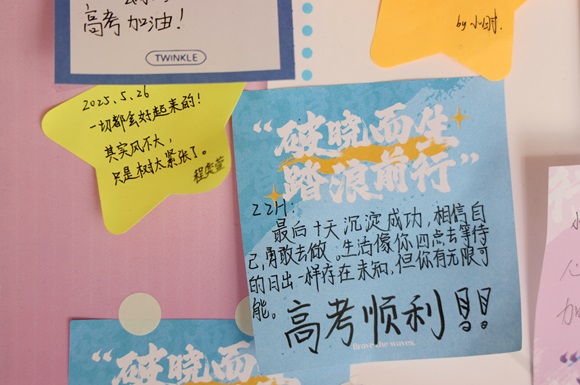 高考加油！
TWINKLE
by 小时.
2025.5.26
一切都会好起来的！
其实风不大，
只是树太紧张了。
“破晓而生
踏浪前行”
ZZH：
最后十天沉淀成功，相信自
己，勇敢去做。生活像你四点去等待
的日出一样存在未知，但你有无限可
能。
高考顺利！！
Brave the waves.
“破晓而生